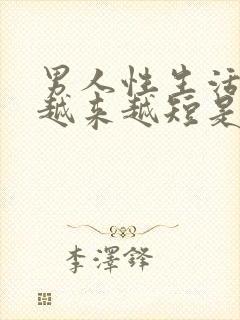 男人性生活
越来越短是
李澤鋒